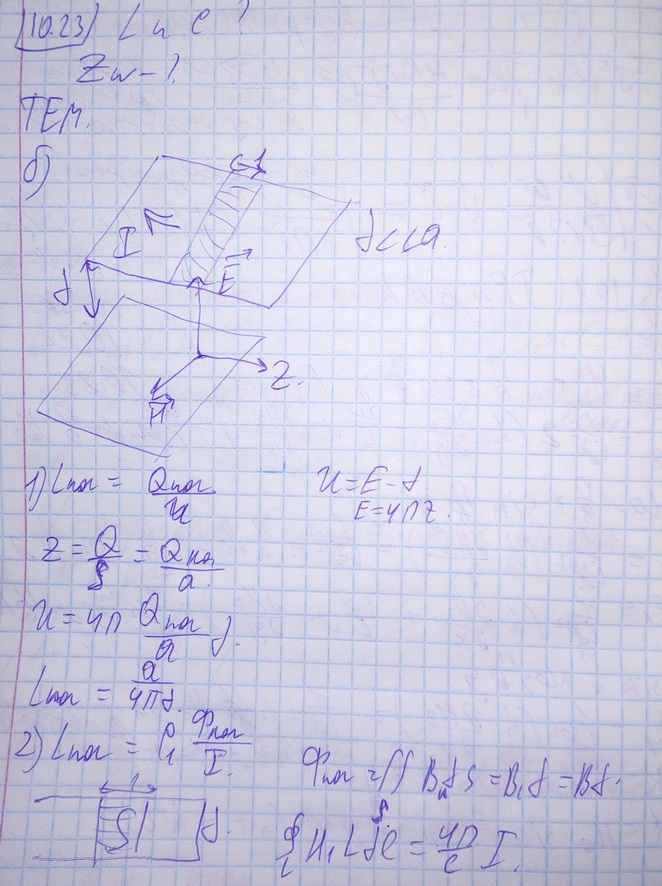 10.23) L и C ?
Zw - ?
ТЕМ.
б)
1
I
E
d << a.
d
Z.
H
1) Cпог = Qпог / U
U = E · d
E = 4π τ.
τ = Q / S = Qпог / a
U = 4π Qпог / a d.
Cпог = a / 4πd.
2) Lпог = C Фпог / I.
Фпог = ∬ Bn dS = B1d = Bd.
1
S
d.
∮ H, dl = 4π / c I.